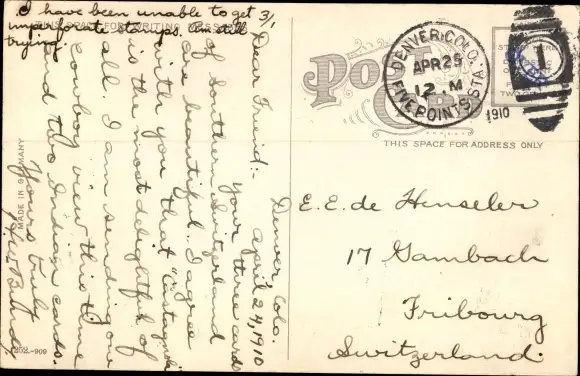 I have been unable to get 3/1
imperforate stamps. Am still
trying.
THIS SPACE FOR WRITING MESSAGES
Denver, Colo.
April, 24, 1910
Dear Freind:-
Your three cards
of Southern Switzerland
are beautiful. I agree
with you that "Castagnola
is the most delightful of
all. I am sending one
cowboy view this time
and two Indian cards.
Yours truly
MADE IN GERMANY
252.-909
POST
CARD
DENVER, COLO.
APR 25
12 M
FIVE POINTS STA.
1910
1
THIS SPACE FOR ADDRESS ONLY
E. E. de Henseler
17 Gambach
Fribourg
Switzerland.